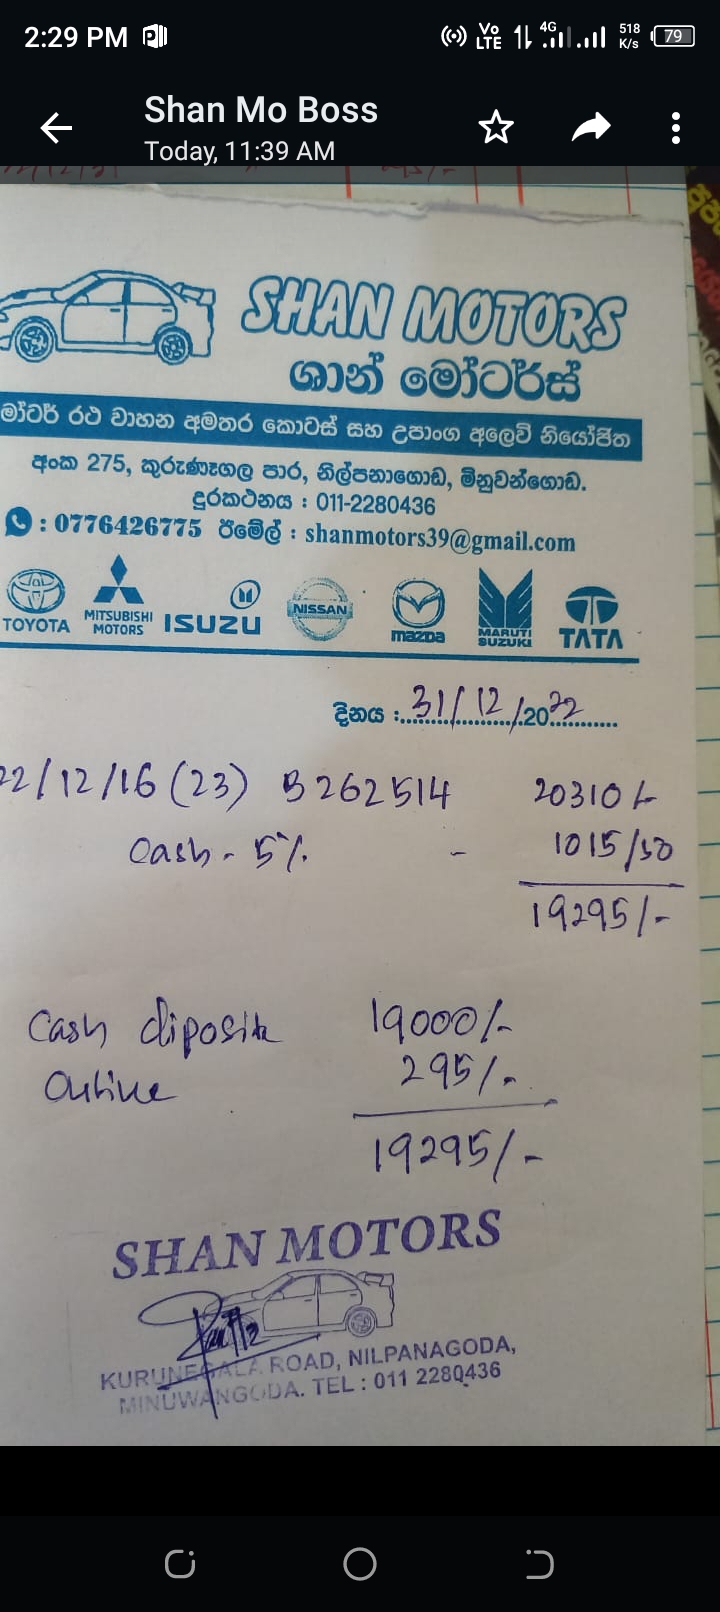 2:29 PM
Vo LTE 4G 518 K/s 79
Shan Mo Boss
Today, 11:39 AM
SHAN MOTORS
ශාන් මෝටර්ස්
මෝටර් රථ වාහන අමතර කොටස් සහ උපාංග අලෙවි නියෝජිත
අංක 275, කුරුණෑගල පාර, නිල්පනාගොඩ, මිනුවන්ගොඩ.
දුරකථනය : 011-2280436
: 0776426775 ඊමේල් : shanmotors39@gmail.com
TOYOTA MITSUBISHI MOTORS ISUZU NISSAN mazda MARUTI SUZUKI TATA
දිනය : 31/12/2022
22/12/16 (23) B 262514 20310/-
Cash - 5% - 1015/50
19295/-
Cash diposit 19000/-
Online 295/-
19295/-
SHAN MOTORS
KURUNEGALA ROAD, NILPANAGODA,
MINUWANGODA. TEL : 011 2280436